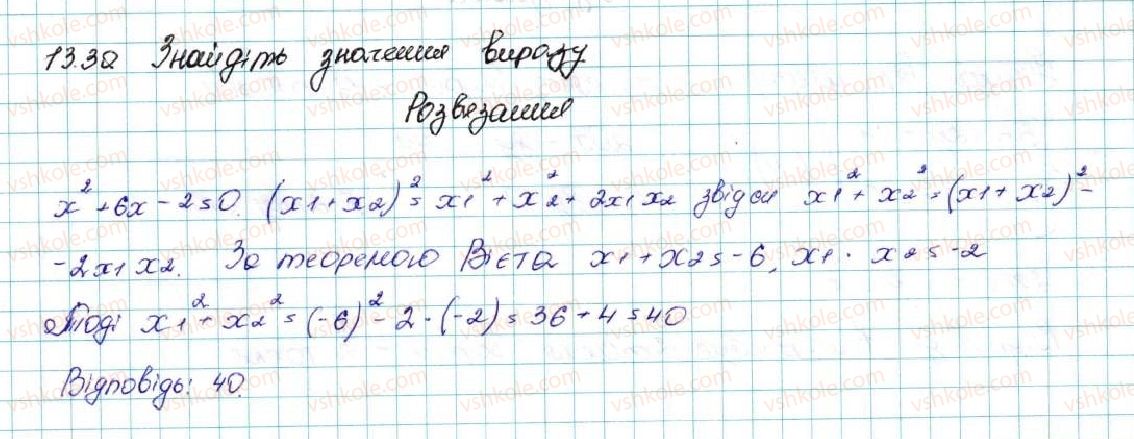 13.30 Знайдіть значення виразу
Розвязання
x² + 6x - 2 = 0. (x1 + x2)² = x1² + x2² + 2x1 x2 звідси x1² + x2² = (x1 + x2)² -
- 2x1 x2. За теоремою Вієта x1 + x2 = -6, x1 · x2 = -2
Тоді x1² + x2² = (-6)² - 2 · (-2) = 36 + 4 = 40
Відповідь: 40.